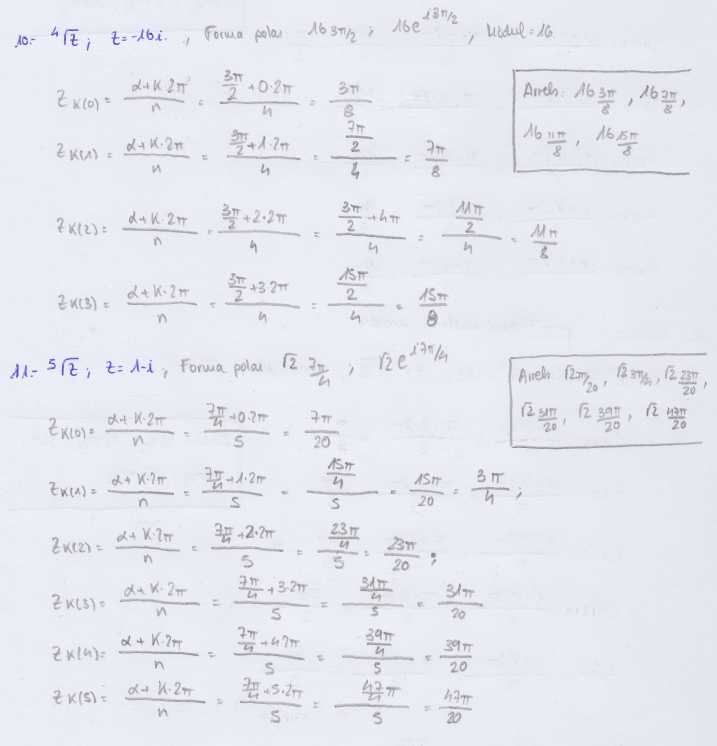 10.- ⁴√z ; z=-16i. , Forma polar 16 3π/2 ; 16e^(i3π/2) , Mòdul=16.
Z K(0) = (α+K·2π)/n = (3π/2+0·2π)/4 = 3π/8
Arrels: 16 3π/8 , 16 7π/8 ,
16 11π/8 , 16 15π/8
Z K(1) = (α+K·2π)/n = (3π/2+1·2π)/4 = (7π/2)/4 = 7π/8
Z K(2) = (α+K·2π)/n = (3π/2+2·2π)/4 = (3π/2+4π)/4 = (11π/2)/4 = 11π/8
Z K(3) = (α+K·2π)/n = (3π/2+3·2π)/4 = (15π/2)/4 = 15π/8
11.- ⁵√z ; z=1-i , Forma polar √2 7π/4 ; √2e^(i7π/4)
Arrels √2 7π/20 , √2 3π/4 , √2 23π/20 ,
√2 31π/20 , √2 39π/20 , √2 47π/20
Z K(0) = (α+K·2π)/n = (7π/4+0·2π)/5 = 7π/20
Z K(1) = (α+K·2π)/n = (7π/4+1·2π)/5 = (15π/4)/5 = 15π/20 = 3π/4 ;
Z K(2) = (α+K·2π)/n = (7π/4+2·2π)/5 = (23π/4)/5 = 23π/20 ;
Z K(3) = (α+K·2π)/n = (7π/4+3·2π)/5 = (31π/4)/5 = 31π/20
Z K(4) = (α+K·2π)/n = (7π/4+4·2π)/5 = (39π/4)/5 = 39π/20
Z K(5) = (α+K·2π)/n = (7π/4+5·2π)/5 = (47/4 π)/5 = 47π/20